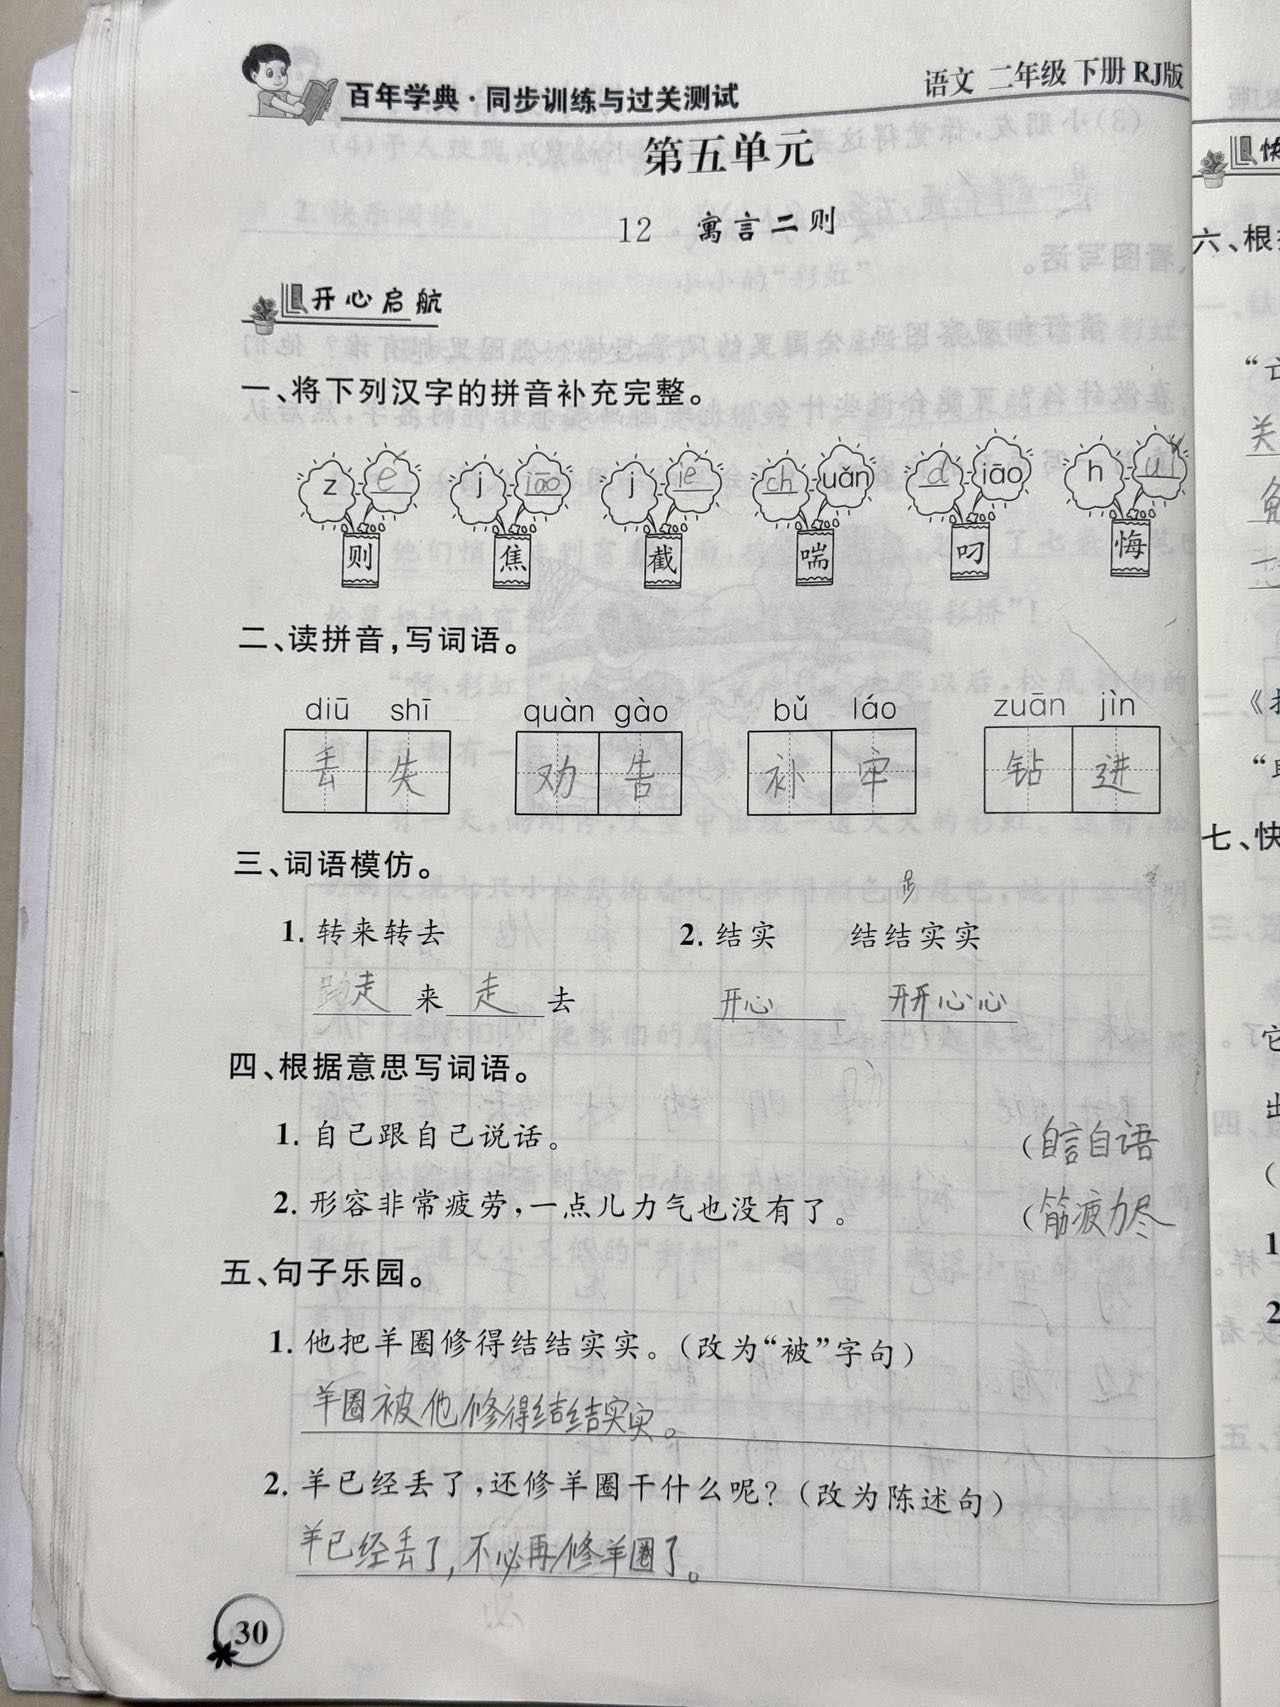 百年学典·同步训练与过关测试
语文 二年级 下册 RJ版
第五单元
12 寓言二则
开心启航
一、将下列汉字的拼音补充完整。
z é j iāo j ié ch uǎn d iāo h uǐ
则 焦 截 喘 叼 悔
二、读拼音，写词语。
diū shī quàn gào bǔ láo zuān jìn
丢失 劝告 补牢 钻进
三、词语模仿。
步
1. 转来转去 2. 结实 结结实实
走来走去 开心 开开心心
四、根据意思写词语。
1. 自己跟自己说话。 (自言自语
2. 形容非常疲劳，一点儿力气也没有了。 (筋疲力尽
五、句子乐园。
1. 他把羊圈修得结结实实。（改为“被”字句）
羊圈被他修得结结实实。
2. 羊已经丢了，还修羊圈干什么呢？（改为陈述句）
羊已经丢了，不必再修羊圈了。
30
六、根
“亡
关
《
“
七、快
它
出
(
1
2